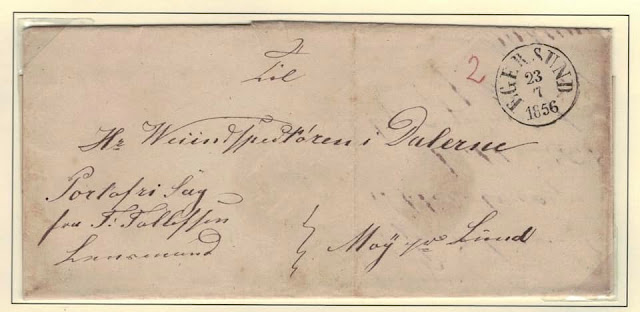 Til
2
EGERSUND
23
7
1856
Hr Veiinspektøren i Dalerne
Portofri Sag
fra T. Tollefsen
Lensmand
Moÿ pr Lund